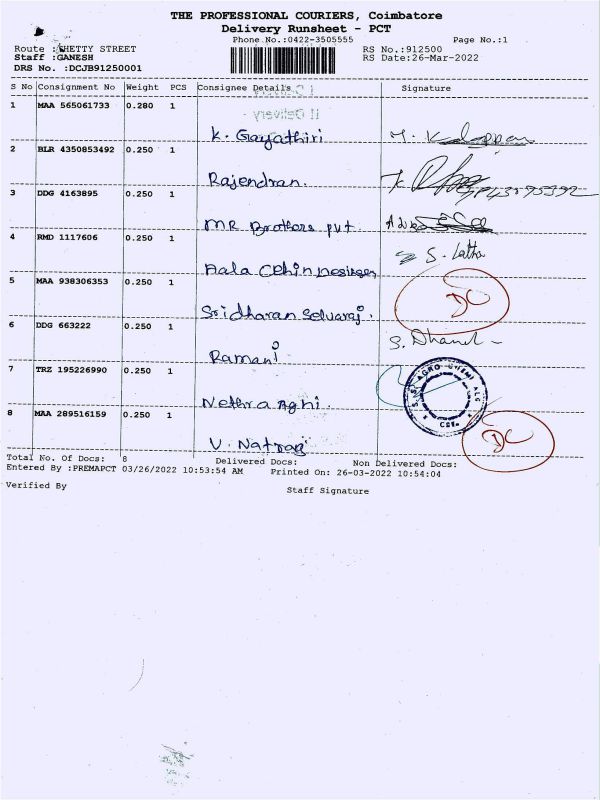 THE PROFESSIONAL COURIERS, Coimbatore
Delivery Runsheet - PCT
Phone No.:0422-3505555 Page No.:1
Route :SHETTY STREET RS No.:912500
Staff :GANESH RS Date:26-Mar-2022
DRS No. :DCJB91250001
S No Consignment No Weight PCS Consignee Details Signature
II Delivery
1 MAA 565061733 0.280 1 K. Gayathiri
2 BLR 4350853492 0.250 1 Rajendran.
3 DDG 4163895 0.250 1 MR Brothers pvt
4 RMD 1117606 0.250 1 S. Latha
5 MAA 938306353 0.250 1 Sridharan Selvaraj. DC
6 DDG 663222 0.250 1 Ramani S. Dhanel -
7 TRZ 195226990 0.250 1 Nethra Aghi.
8 MAA 289516159 0.250 1 V. Natraj DC
Total No. Of Docs: 8 Delivered Docs: Non Delivered Docs:
Entered By :PREMAPCT 03/26/2022 10:53:54 AM Printed On: 26-03-2022 10:54:04
Verified By Staff Signature